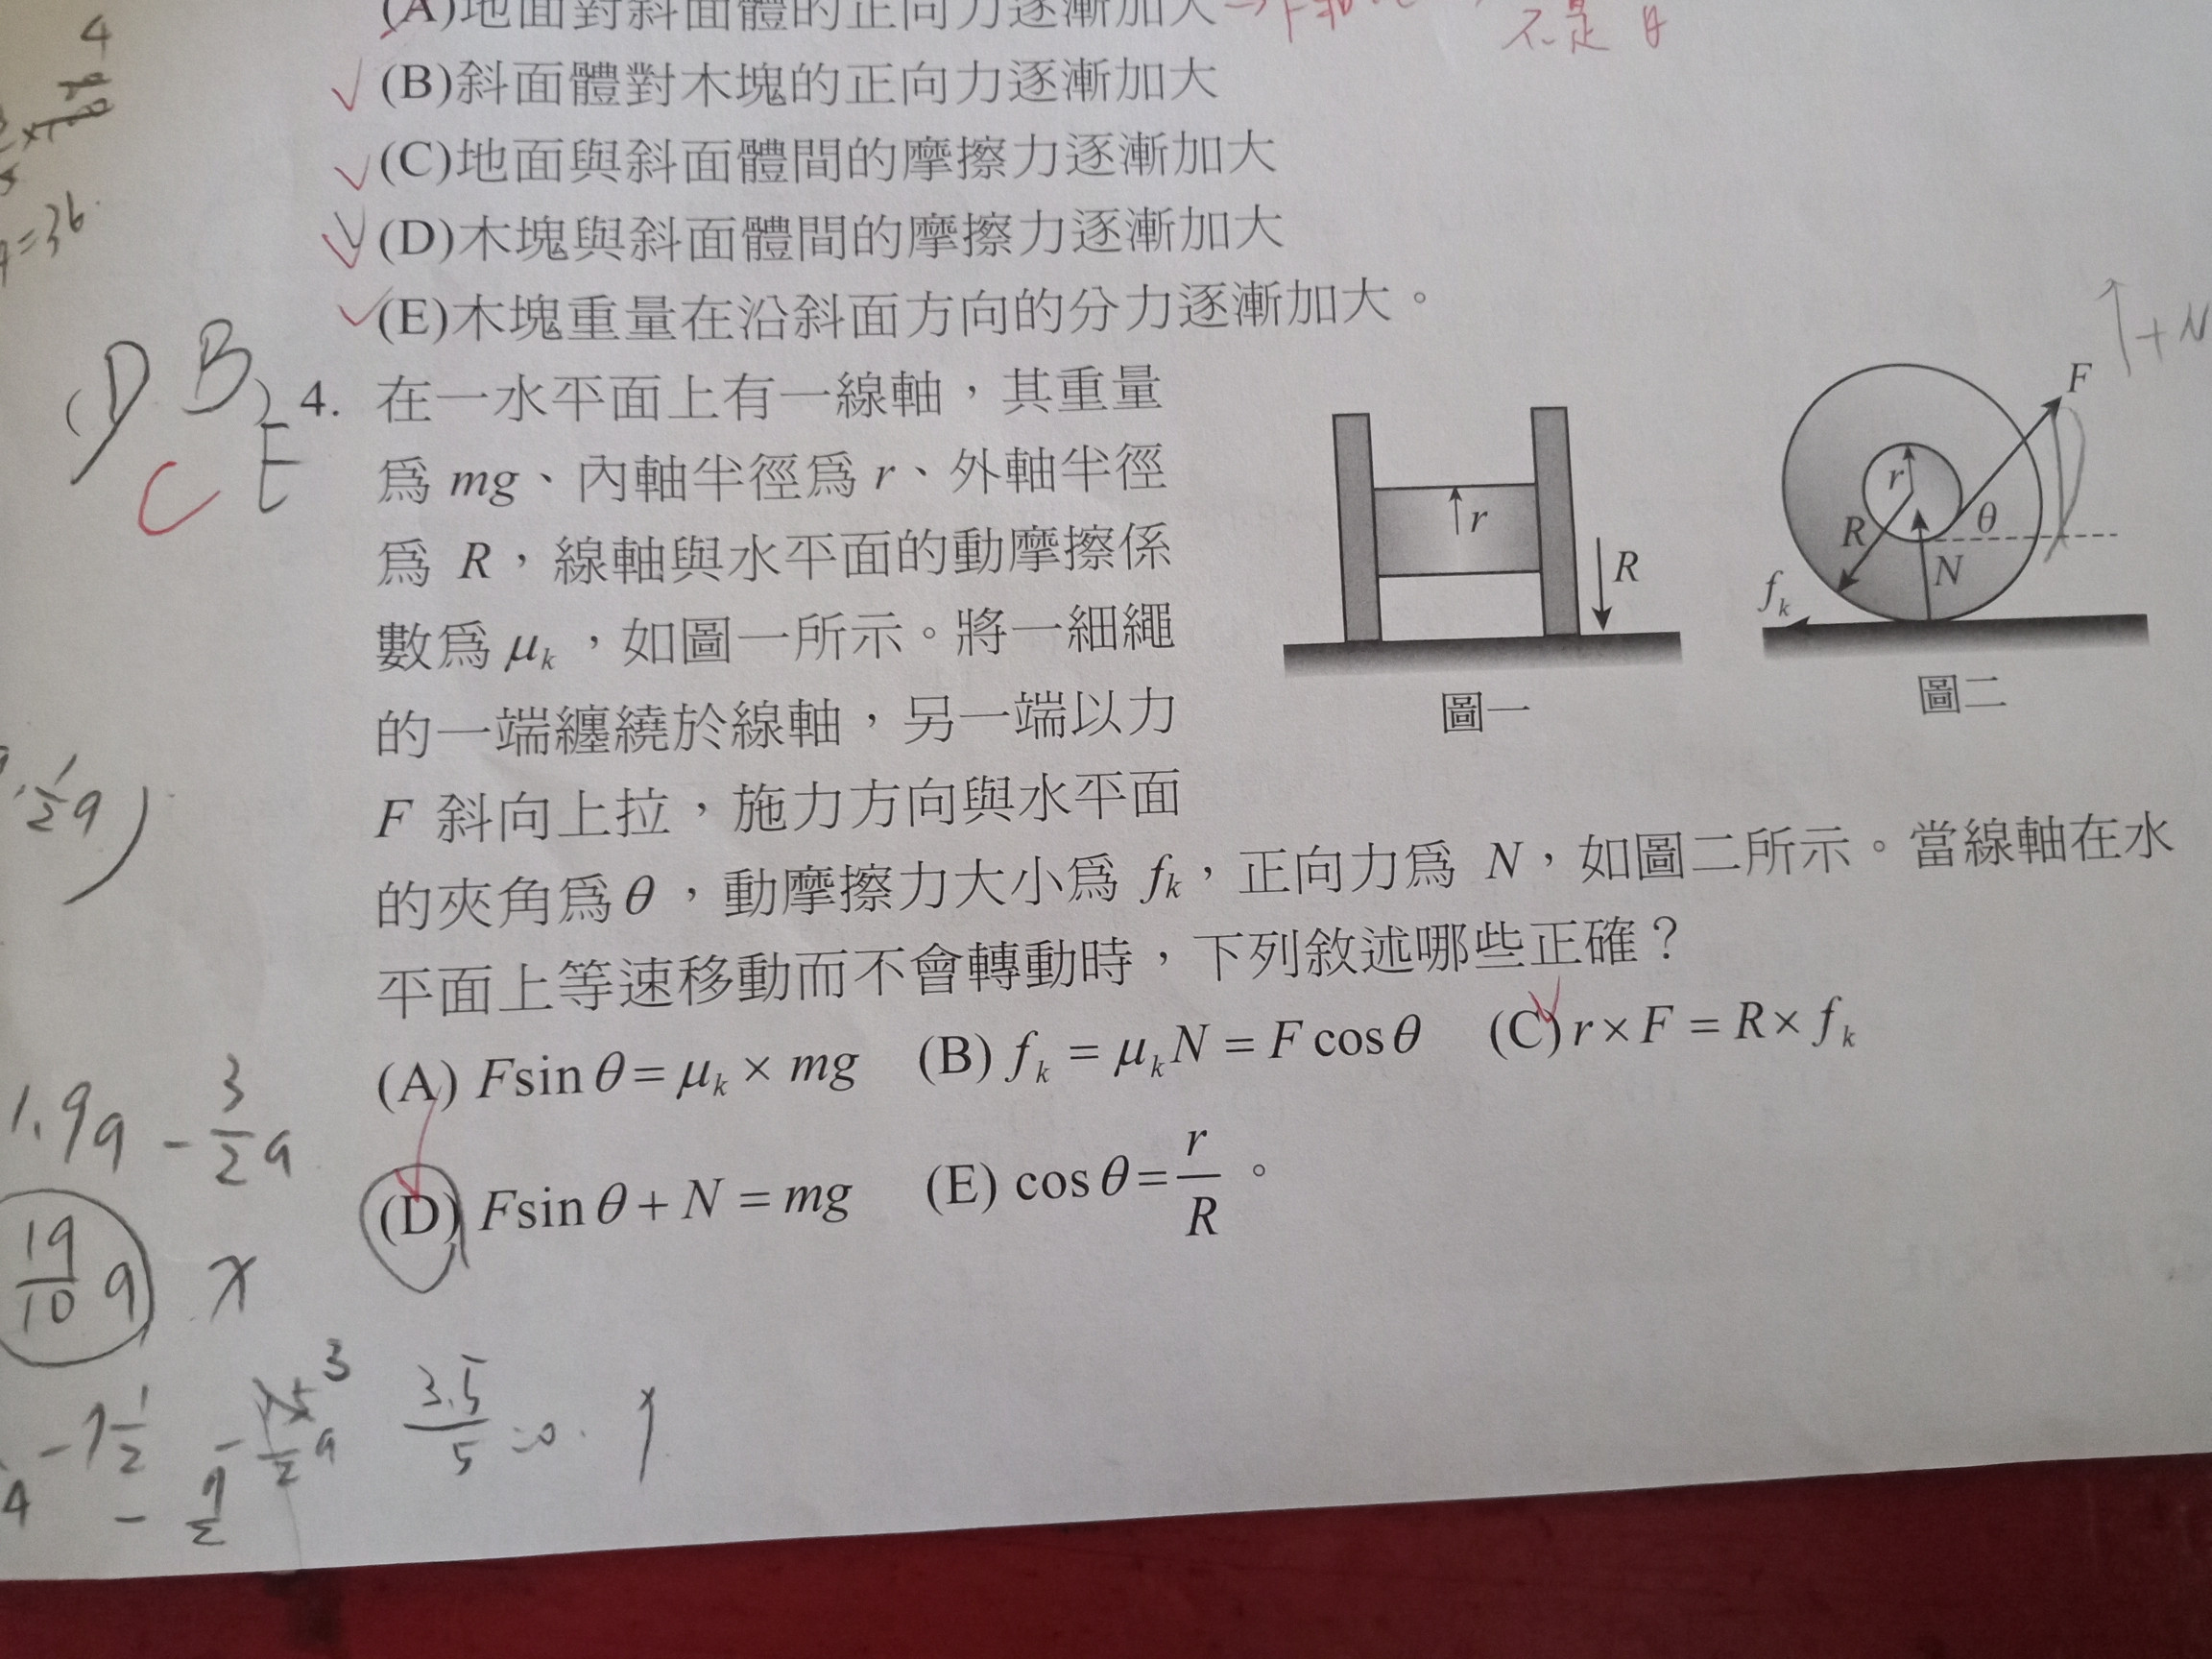 4
(A)地面對斜面體的正向力逐漸加大
不是
(B)斜面體對木塊的正向力逐漸加大
(C)地面與斜面體間的摩擦力逐漸加大
=36
(D)木塊與斜面體間的摩擦力逐漸加大
(E)木塊重量在沿斜面方向的分力逐漸加大。
+N
(D B) 4. 在一水平面上有一線軸,其重量
C E
為 mg、內軸半徑為 r、外軸半徑
為 R,線軸與水平面的動摩擦係
數為 μk,如圖一所示。將一細繩
的一端纏繞於線軸,另一端以力
F 斜向上拉,施力方向與水平面
r
R
圖一
F
r
θ
R
N
fk
圖二
的夾角為θ,動摩擦力大小為 fk,正向力為 N,如圖二所示。當線軸在水
平面上等速移動而不會轉動時,下列敘述哪些正確?
(A) Fsin θ = μk × mg (B) fk = μkN = F cos θ (C) r × F = R × fk
(D) Fsin θ + N = mg (E) cos θ = r/R。
1.9a - 3/2 a
19/10 a
x
3.5/5 = 0.